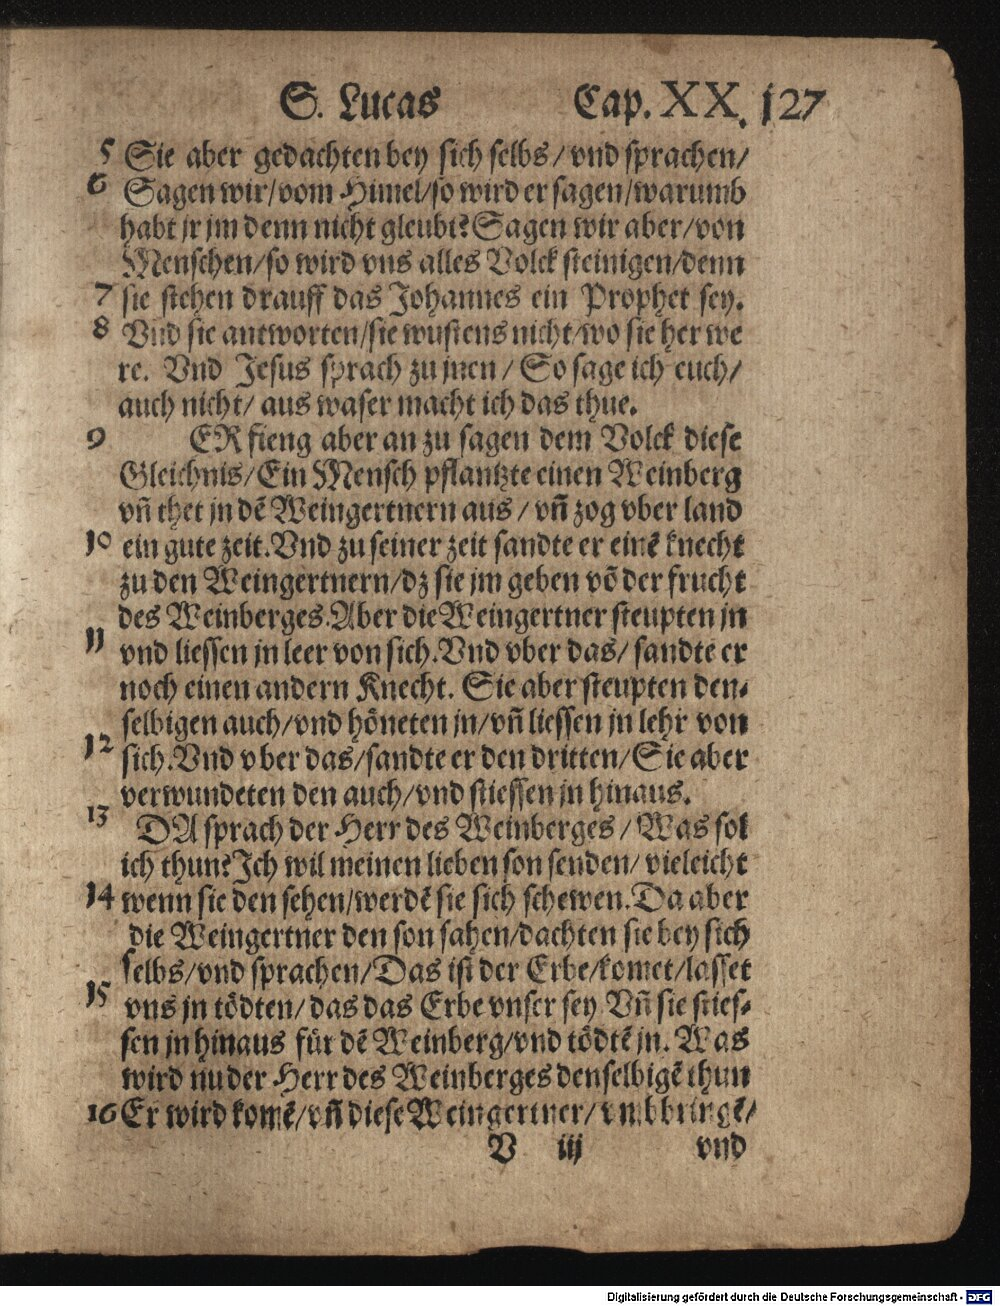 S. Lucas Cap. XX. 127
5 Sie aber gedachten bey sich selbs/ vnd sprachen/
6 Sagen wir/vom Himel/so wird er sagen/warumb
habt jr jm denn nicht gleubt? Sagen wir aber/von
Menschen/so wird vns alles Volck steinigen/denn
7 sie stehen drauff das Johannes ein Prophet sey.
8 Vnd sie antworten/sie wustens nicht/wo sie her we
re. Vnd Jesus sprach zu jnen / So sage ich euch/
auch nicht/ aus waser macht ich das thue.
9 ER fieng aber an zu sagen dem Volck diese
Gleichnis/Ein Mensch pflantzte einen Weinberg
vñ thet jn dẽ Weingertnern aus / vñ zog vber land
10 ein gute zeit. Vnd zu seiner zeit sandte er einẽ knecht
zu den Weingertnern/dz sie jm geben võ der frucht
des Weinberges. Aber die Weingertner steupten jn
11 vnd liessen jn leer von sich. Vnd vber das/ sandte er
noch einen andern Knecht. Sie aber steupten den-
selbigen auch/vnd höneten jn/vñ liessen jn lehr von
12 sich. Vnd vber das/sandte er den dritten/Sie aber
verwundeten den auch/vnd stiessen jn hinaus.
13 DA sprach der Herr des Weinberges / Was sol
ich thun? Jch wil meinen lieben son senden/ vieleicht
14 wenn sie den sehen/werdẽ sie sich schewen. Da aber
die Weingertner den son sahen/dachten sie bey sich
selbs/vnd sprachen/Das ist der Erbe/komet/lasset
15 vns jn tödten/ das das Erbe vnser sey. Vñ sie sties-
sen jn hinaus für dẽ Weinberg/vnd tödtẽ jn. Was
wird nu der Herr des Weinberges denselbigẽ thun
16 Er wird komẽ/vñ diese Weingertner/ vmbbringẽ/
V iij vnd
Digitalisierung gefördert durch die Deutsche Forschungsgemeinschaft - DFG